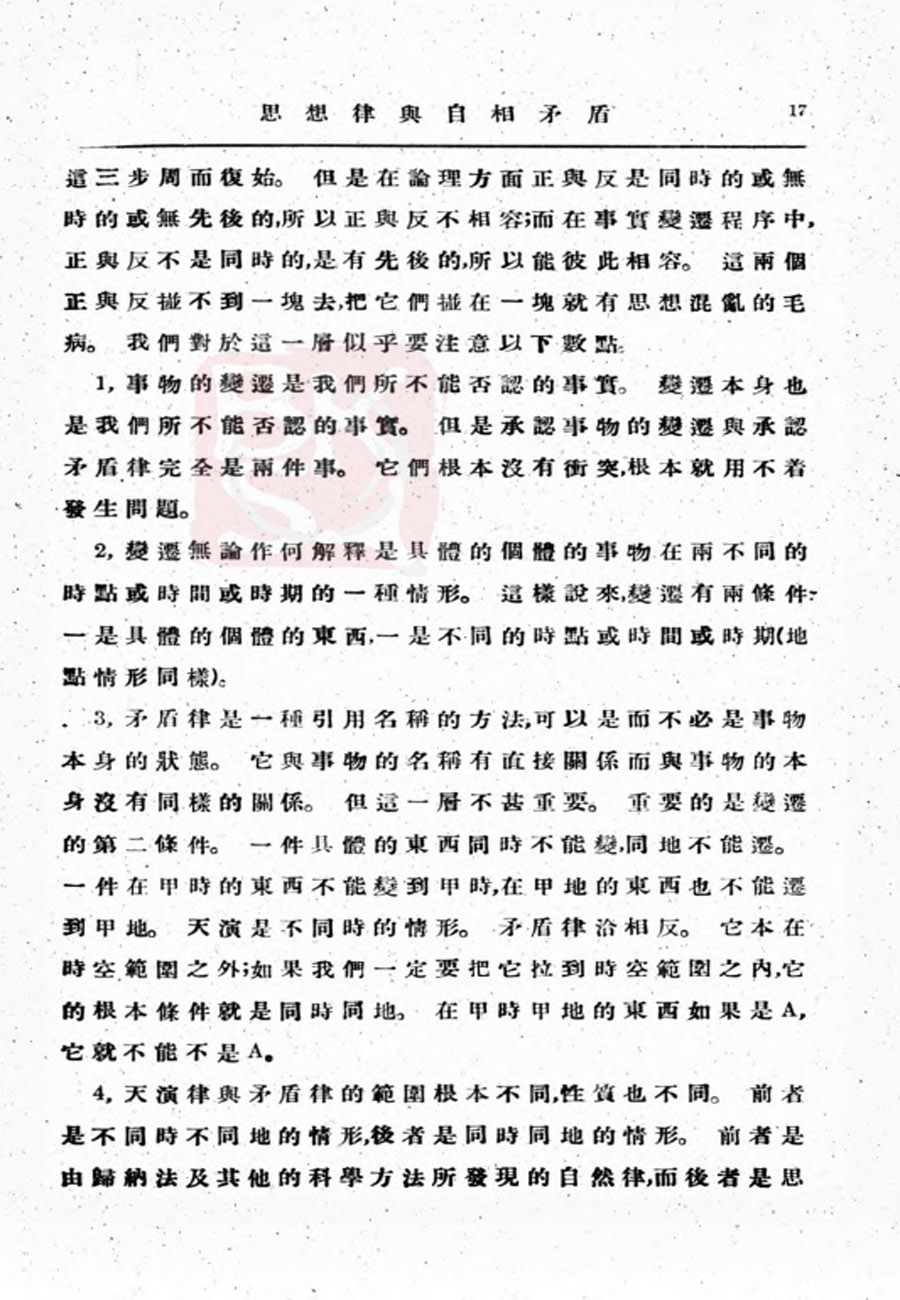 思想律與自相矛盾 17
這三步周而復始。 但是在論理方面正與反是同時的或無
時的或無先後的,所以正與反不相容;而在事實變遷程序中,
正與反不是同時的,是有先後的,所以能彼此相容。 這兩個
正與反攏不到一塊去,把它們攏在一塊就有思想混亂的毛
病。 我們對於這一層似乎要注意以下數點:
1, 事物的變遷是我們所不能否認的事實。 變遷本身也
是我們所不能否認的事實。 但是承認事物的變遷與承認
矛盾律完全是兩件事。 它們根本沒有衝突,根本就用不着
發生問題。
2, 變遷無論作何解釋是具體的個體的事物在兩不同的
時點或時間或時期的一種情形。 這樣說來,變遷有兩條件:
一是具體的個體的東西,一是不同的時點或時間或時期(地
點情形同樣)。
3, 矛盾律是一種引用名稱的方法,可以是而不必是事物
本身的狀態。 它與事物的名稱有直接關係而與事物的本
身沒有同樣的關係。 但這一層不甚重要。 重要的是變遷
的第二條件。 一件具體的東西同時不能變,同地不能遷。
一件在甲時的東西不能變到甲時,在甲地的東西也不能遷
到甲地。 天演是不同時的情形。 矛盾律洽相反。 它本在
時空範圍之外;如果我們一定要把它拉到時空範圍之內,它
的根本條件就是同時同地。 在甲時甲地的東西如果是A,
它就不能不是A。
4, 天演律與矛盾律的範圍根本不同,性質也不同。 前者
是不同時不同地的情形,後者是同時同地的情形。 前者是
由歸納法及其他的科學方法所發現的自然律,而後者是思